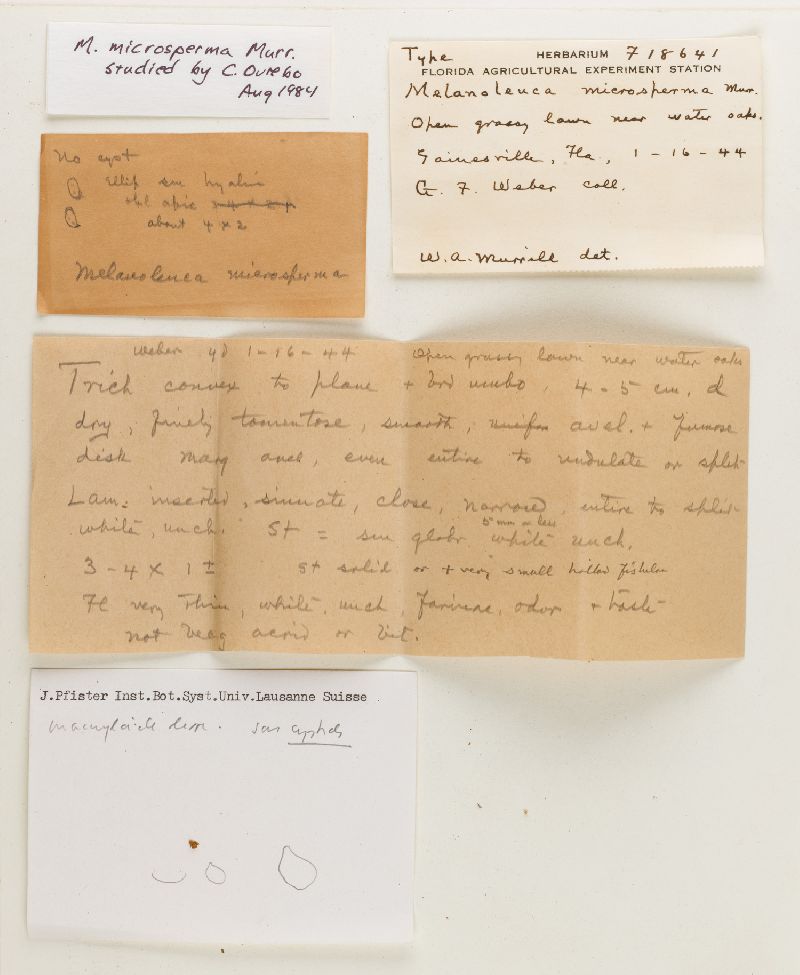 M. microsperma Murr.
studied by C. Ovrebo
Aug 1984
Type HERBARIUM F18641
FLORIDA AGRICULTURAL EXPERIMENT STATION
Melanoleuca microsperma Murr.
Open grassy lawn near water oaks.
Gainesville, Fla, 1-16-44
G. F. Weber coll.
W. A. Murrill det.
No cyst
Ellip sm hyalin
obl apic
about 4 x 2
Melanoleuca microsperma
Weber yd 1-16-44 Open grassy lawn near water oaks
Trich convex to plane + brd umbo, 4-5 cm. d
dry, finely tomentose, smooth, avel. + fumose
disk marg avel, even entire to undulate or split
Lam. inserted, sinuate, close, narrowed, entire to split
5 mm or less
white, unch. St = sm glabr white unch.
3-4 x 1 ± St solid or + very small hollow fistula
Fl very thin, white, unch, farinac, odor + taste
not acrid or bit.
J.Pfister Inst.Bot.Syst.Univ.Lausanne Suisse